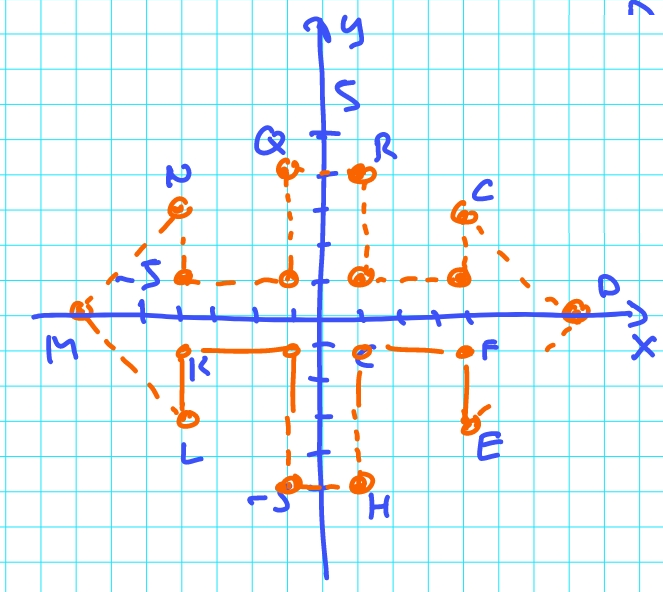 y
5
Q R
N C
-5
D
M K F X
L E
-5 H